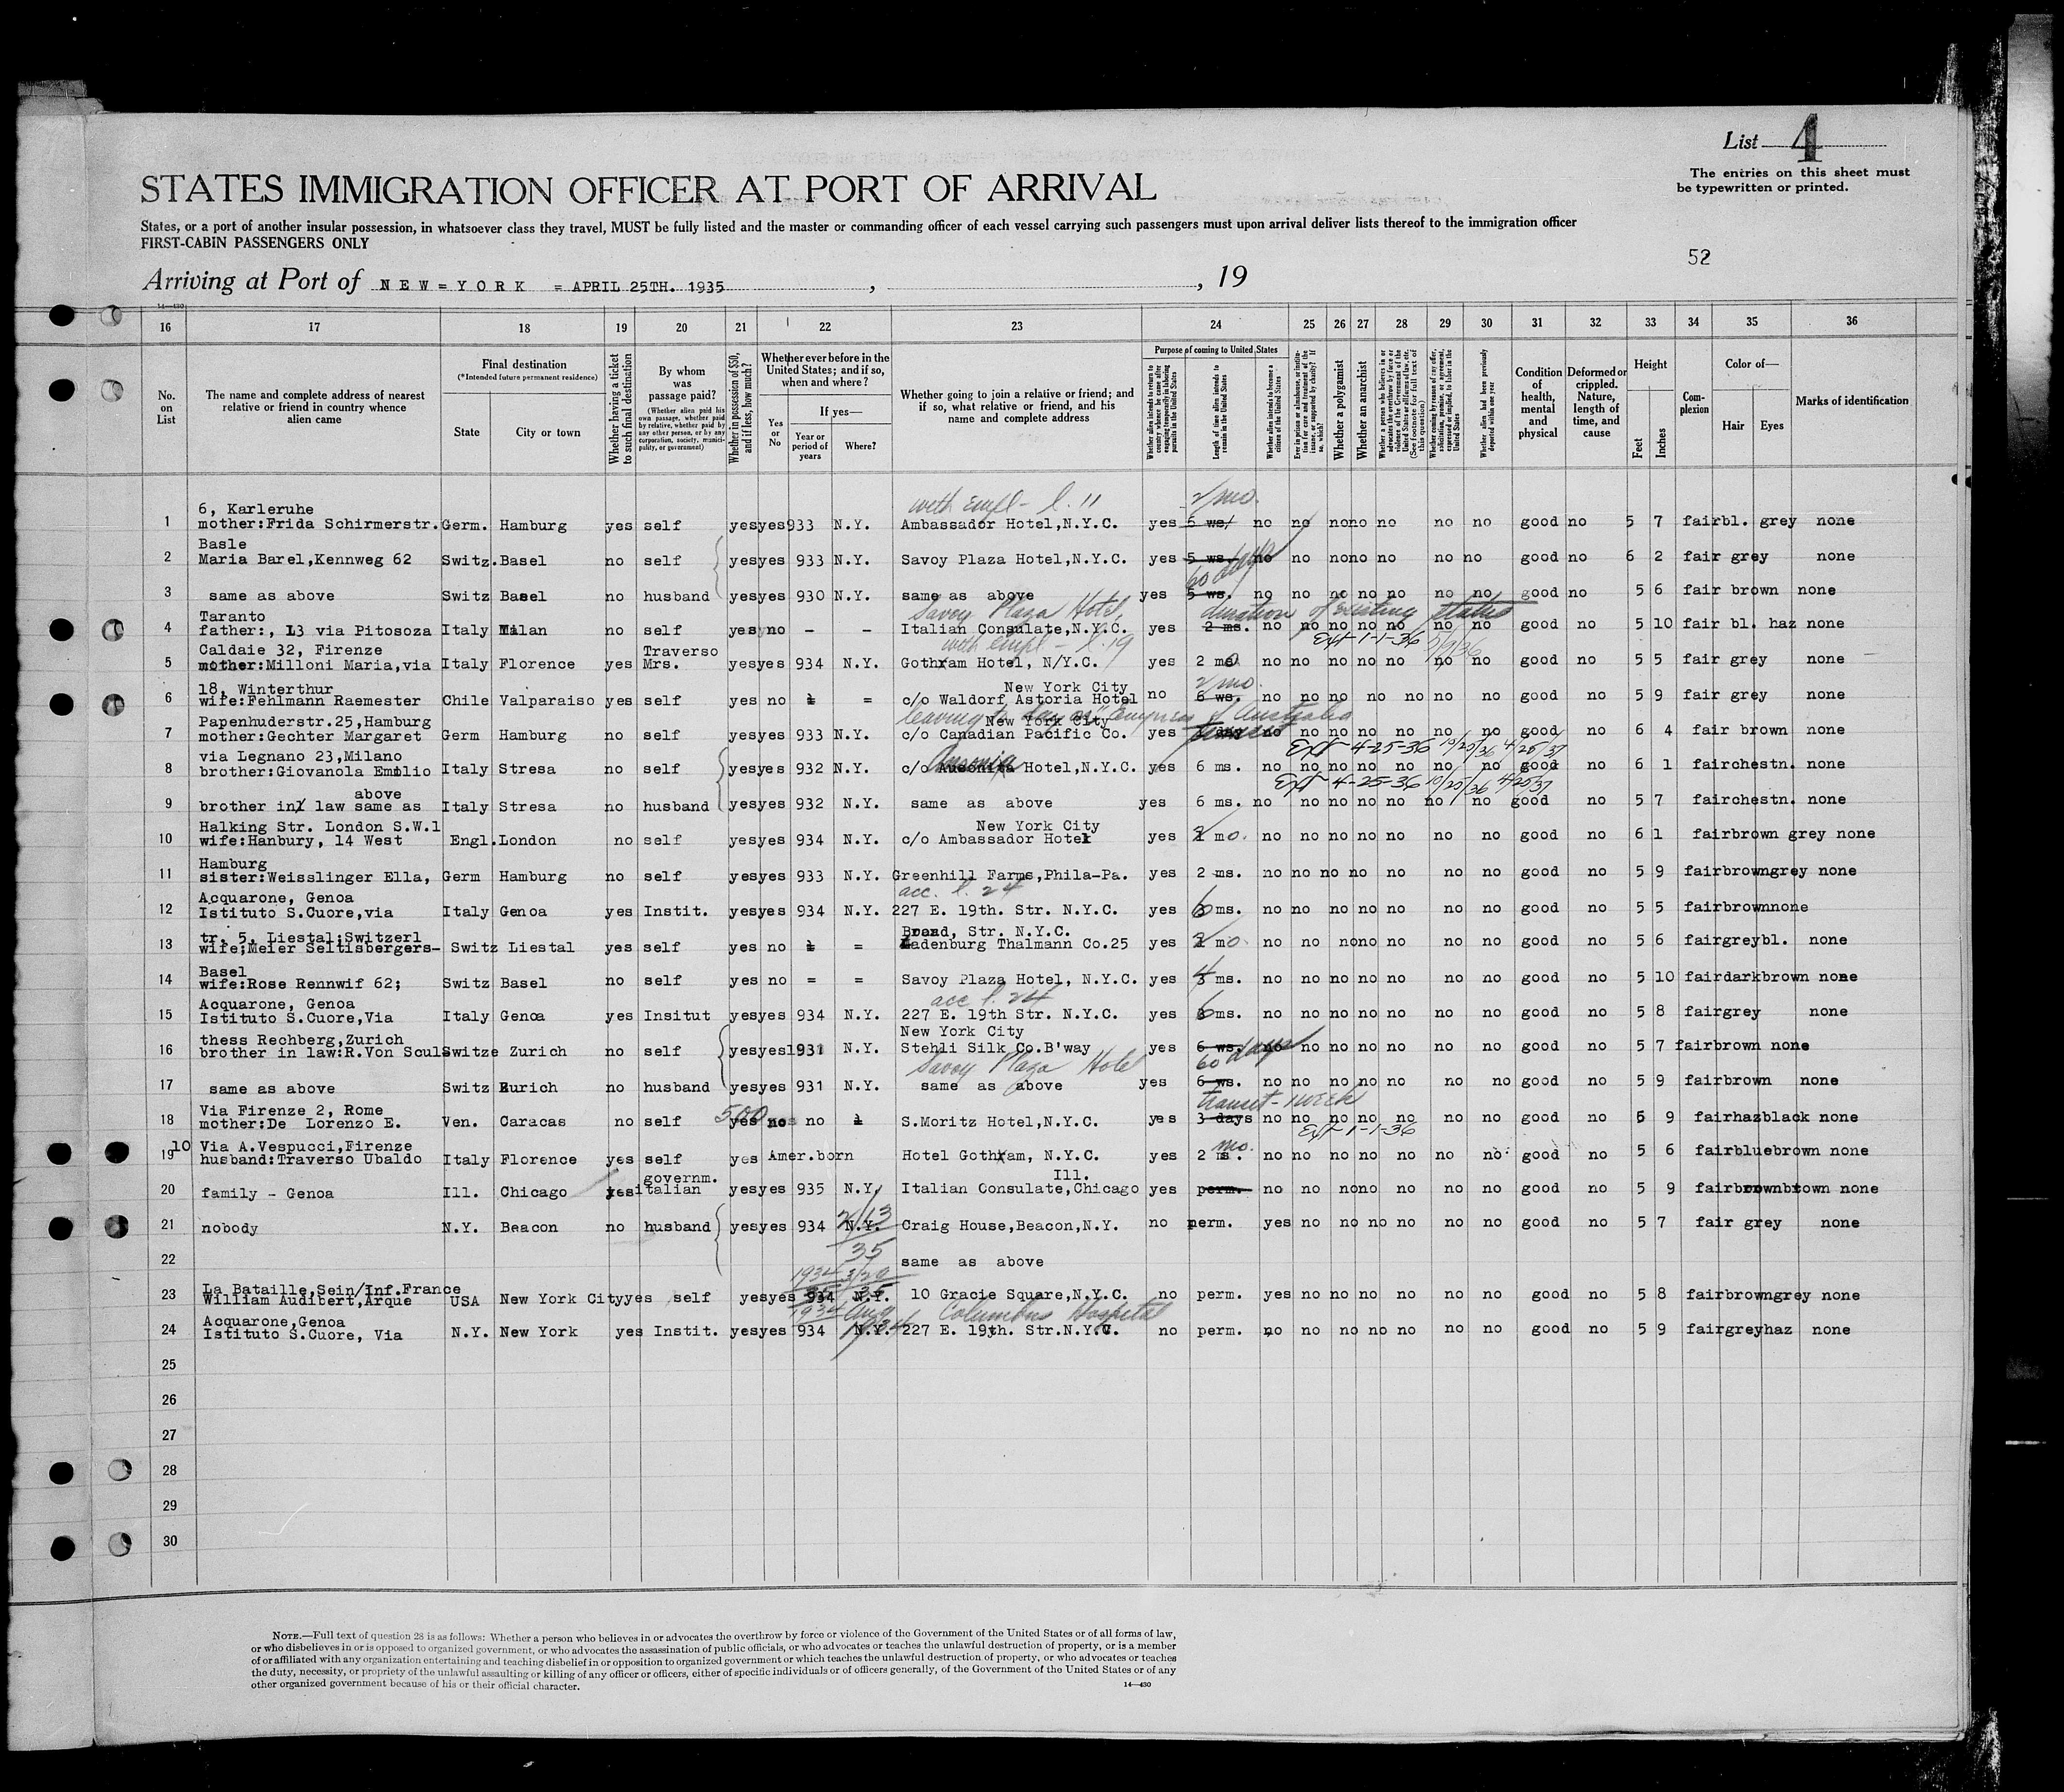 List 4
The entries on this sheet must
be typewritten or printed.
STATES IMMIGRATION OFFICER AT PORT OF ARRIVAL
States, or a port of another insular possession, in whatsoever class they travel, MUST be fully listed and the master or commanding officer of each vessel carrying such passengers must upon arrival deliver lists thereof to the immigration officer
FIRST-CABIN PASSENGERS ONLY
52
Arriving at Port of NEW=YORK = APRIL 25TH. 1935 , , 19
14—430
16 17 18 19 20 21 22 23 24 25 26 27 28 29 30 31 32 33 34 35 36
No. on List
The name and complete address of nearest relative or friend in country whence alien came
Final destination
(*Intended future permanent residence)
State City or town
Whether having a ticket to such final destination
By whom was passage paid?
(Whether alien paid his own passage, whether paid by relative, whether paid by any other person, or by any corporation, society, municipality, or government)
Whether in possession of $50, and if less, how much?
Whether ever before in the United States; and if so, when and where?
Yes or No
If yes—
Year or period of years Where?
Whether going to join a relative or friend; and if so, what relative or friend, and his name and complete address
Purpose of coming to United States
Whether alien intends to return to country whence he came after engaging temporarily in laboring pursuits in the United States
Length of time alien intends to remain in the United States
Whether alien intends to become a citizen of the United States
Ever in prison or almshouse, or institution for care and treatment of the insane, or supported by charity? If so, which?
Whether a polygamist
Whether an anarchist
Whether a person who believes in or advocates the overthrow by force or violence of the Government of the United States or all forms of law, etc. (See footnote for full text of this question)
Whether coming by reason of any offer, solicitation, promise, or agreement, expressed or implied, to labor in the United States
Whether alien had been previously deported within one year
Condition of health, mental and physical
Deformed or crippled. Nature, length of time, and cause
Height
Feet Inches
Complexion
Color of—
Hair Eyes
Marks of identification
with Empl - l. 11 2/mo.
6, Karleruhe
1 mother:Frida Schirmerstr. Germ. Hamburg yes self yes yes 933 N.Y. Ambassador Hotel,N.Y.C. yes 6 ws/ no no no no no no no good no 5 7 fair bl. grey none
Basle
2 Maria Barel,Kennweg 62 Switz. Basel no self yes yes 933 N.Y. Savoy Plaza Hotel,N.Y.C. yes 5 ws. no no no no no no no good no 6 2 fair grey none
60 days
3 same as above Switz Basel no husband yes yes 930 N.Y. same as above yes 5 ws. no no no no no no no good no 5 6 fair brown none
Savoy Plaza Hotel, duration of existing status
Taranto
4 father:, 13 via Pitosoza Italy Milan no self yes no - - Italian Consulate,N.Y.C. yes 2 ms. no no no no no no no good no 5 10 fair bl. haz none
with empl - l. 19 Ext 1-1-36
Caldaie 32, Firenze Traverso
5 mother:Milloni Maria,via Italy Florence yes Mrs. yes yes 934 N.Y. Gotham Hotel, N/Y.C. yes 2 mo no no no no no no no good no 5 5 fair grey none
18, Winterthur New York City 2/mo.
6 wife:Fehlmann Raemester Chile Valparaiso yes self yes no = c/o Waldorf Astoria Hotel no 6 ws. no no no no no no no good no 5 9 fair grey none
leaving to day on "Empress of Australia
Papenhuderstr.25,Hamburg New York City
7 mother:Gechter Margaret Germ Hamburg no self yes yes 933 N.Y. c/o Canadian Pacific Co. yes no no no no no no no good no 6 4 fair brown none
Ext 4-25-36 10/25/36 4/25/37
via Legnano 23,Milano
8 brother:Giovanola Emilio Italy Stresa no self yes yes 932 N.Y. c/o Ansonia Hotel,N.Y.C. yes 6 ms. no no no no no no no good no 6 1 fair chestn. none
Ext 4-25-36 10/25/36 4/25/37
above
9 brother in law same as Italy Stresa no husband yes yes 932 N.Y. same as above yes 6 ms. no no no no no no no good no 5 7 fair chestn. none
Halking Str. London S.W.1 New York City
10 wife:Hanbury, 14 West Engl. London no self yes yes 934 N.Y. c/o Ambassador Hotel yes 2 mo. no no no no no no no good no 6 1 fair brown grey none
Hamburg
11 sister:Weisslinger Ella, Germ Hamburg no self yes yes 933 N.Y. Greenhill Farms,Phila-Pa. yes 2 ms. no no no no no no no good no 5 9 fair brown grey none
acc. l. 24
Acquarone, Genoa
12 Istituto S.Cuore,via Italy Genoa yes Instit. yes yes 934 N.Y. 227 E. 19th. Str. N.Y.C. yes 6 ms. no no no no no no no good no 5 5 fair brown none
tr. 5, Liestal;Switzerl Broad, Str. N.Y.C.
13 wife;Meier Seltisbergers- Switz Liestal yes self yes no = Ladenburg Thalmann Co.25 yes 2 mo. no no no no no no no good no 5 6 fair grey bl. none
Basel
14 wife:Rose Rennwif 62; Switz Basel no self yes no = = Savoy Plaza Hotel, N.Y.C. yes 4 ms. no no no no no no no good no 5 10 fair dark brown none
acc l. 24
Acquarone, Genoa
15 Istituto S.Cuore,Via Italy Genoa yes Insitut yes yes 934 N.Y. 227 E. 19th Str. N.Y.C. yes 6 ms. no no no no no no no good no 5 8 fair grey none
thess Rechberg,Zurich New York City
16 brother in law:R.Von Sculs Switze Zurich no self yes yes 1931 N.Y. Stehli Silk Co.B'way yes 6 ws. no no no no no no no good no 5 7 fair brown none
Savoy Plaza Hotel 60 days
17 same as above Switz Zurich no husband yes yes 931 N.Y. same as above yes 6 ws. no no no no no no no good no 5 9 fair brown none
transit - 1 week
Via Firenze 2, Rome 500
18 mother:De Lorenzo E. Ven. Caracas no self yes no S.Moritz Hotel,N.Y.C. yes 3 days no no no no no no no good no 5 9 fair haz black none
Ext 1-1-36
10 Via A.Vespucci,Firenze
19 husband:Traverso Ubaldo Italy Florence yes self yes Amer.born Hotel Gotham, N.Y.C. yes 2 mo. no no no no no no no good no 5 6 fair blue brown none
governm. Ill.
20 family - Genoa Ill. Chicago yes italian yes yes 935 N.Y. Italian Consulate,Chicago yes perm. no no no no no no no good no 5 9 fair brown brown none
2/13
21 nobody N.Y. Beacon no husband yes yes 934 N.Y. Craig House,Beacon,N.Y. no perm. yes no no no no no no good no 5 7 fair grey none
35
22 same as above
1934 3/20
La Bataille,Sein/Inf.France
23 William Audibert,Arque USA New York City yes self yes yes 934 N.Y. 10 Gracie Square,N.Y.C. no perm. yes no no no no no no good no 5 8 fair brown grey none
1934 Aug Columbus Hospital
Acquarone,Genoa
24 Istituto S.Cuore, Via N.Y. New York yes Instit. yes yes 934 N.Y. 227 E. 19th. Str.N.Y.C. no perm. no no no no no no no good no 5 9 fair grey haz none
25
26
27
28
29
30
NOTE.—Full text of question 28 is as follows: Whether a person who believes in or advocates the overthrow by force or violence of the Government of the United States or of all forms of law,
or who disbelieves in or is opposed to organized government, or who advocates the assassination of public officials, or who advocates or teaches the unlawful destruction of property, or is a member
of or affiliated with any organization entertaining and teaching disbelief in or opposition to organized government or which teaches the unlawful destruction of property, or who advocates or teaches
the duty, necessity, or propriety of the unlawful assaulting or killing of any officer or officers, either of specific individuals or of officers generally, of the Government of the United States or of any
other organized government because of his or their official character.
14—430